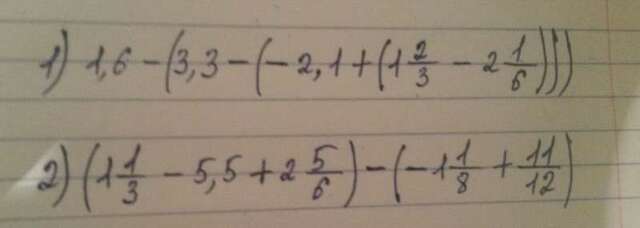 1) 1,6 - (3,3 - (-2,1 + (1 2/3 - 2 1/6)))
2) (1 1/3 - 5,5 + 2 5/6) - (-1 1/8 + 11/12)